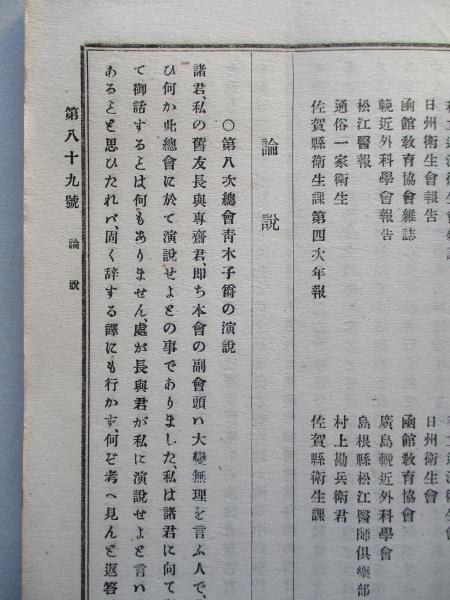 日州衛生會報告
日州衛生會
函館敎育協會雜誌
函館敎育協會
輓近外科學會報告
廣島輓近外科學會
松江醫報
島根縣松江醫師俱樂部
通俗一家衛生
村上勘兵衛君
佐賀縣衛生課第四次年報
佐賀縣衛生課
論說
〇第八次總會靑木子爵の演說
諸君、私の舊友長與專齋君、卽ち本會の副會頭ハ大變無理を言ふ人で、
ひ何か此總會に於て演說せよとの事でありました、私は諸君に向て
て御話するとは何もありません、處が長與君が私に演說せよと言ハ
あるとを思ひたれバ、固く辞する譯にも行かず、何ぞ考へ見んと返答
第八十九號 論說